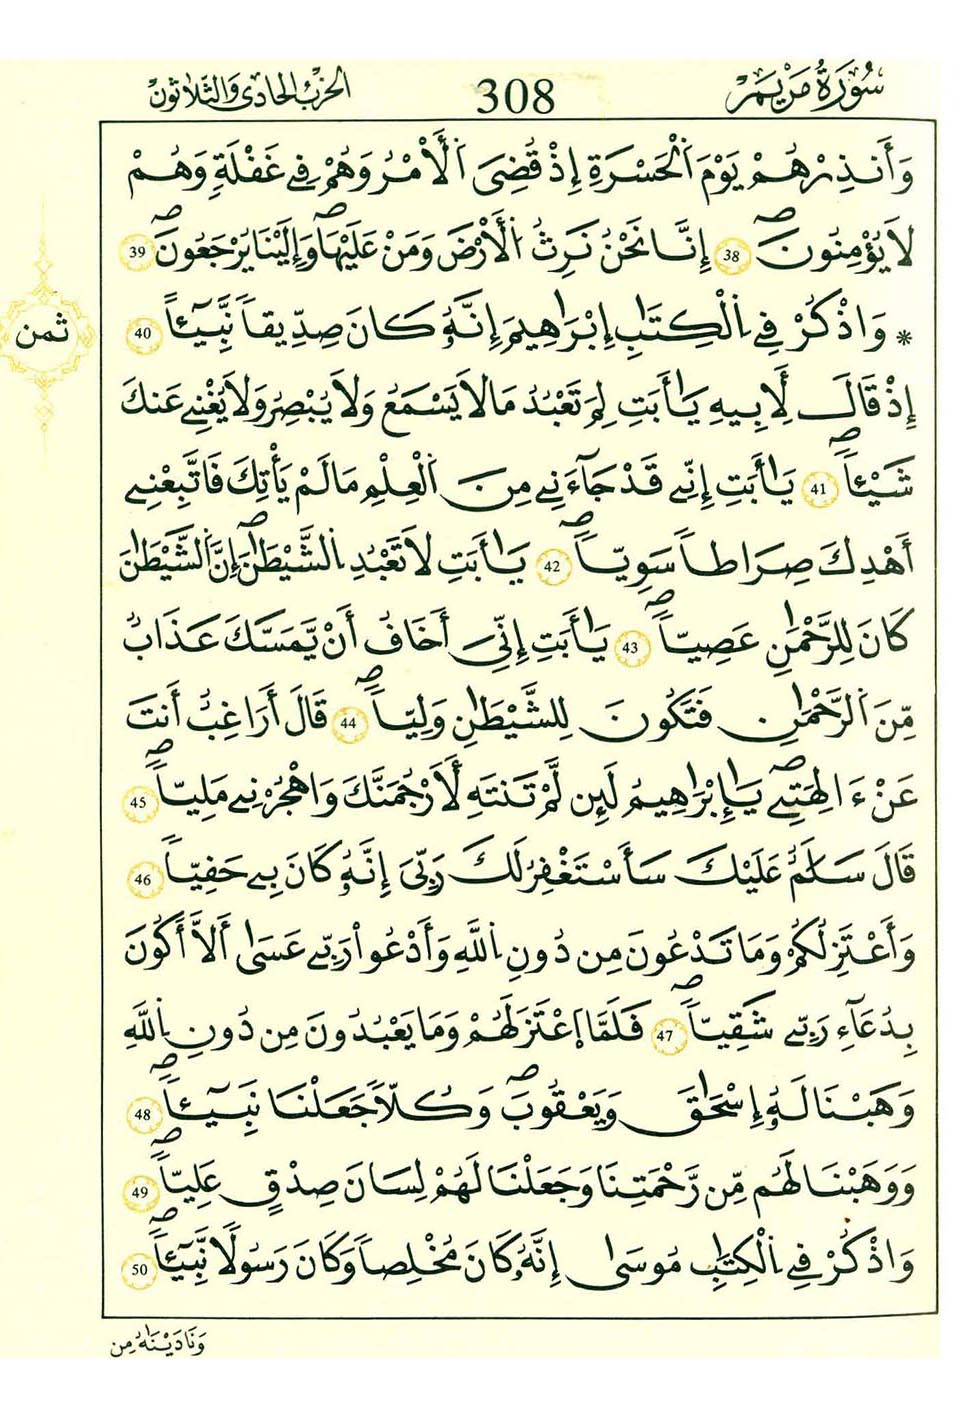 سُورَةُ مَرْيَمَ 308 الحِزْبُ الحَادِى وَالثَّلَاثُونَ
وَأَنذِرْهُمْ يَوْمَ اَ۬لْحَسْرَةِ إِذْ قُضِىَ اَ۬لْأَمْرُ وَهُمْ فِے غَفْلَةٍ وَهُمْ
لَا يُؤْمِنُونَ ۖ 38 إِنَّا نَحْنُ نَرِثُ اُ۬لْأَرْضَ وَمَنْ عَلَيْهَا ۖ وَإِلَيْنَا يُرْجَعُونَ ۖ 39
* وَاذْكُرْ فِے اِ۬لْكِتَٰبِ إِبْرَٰهِيمَ إِنَّهُۥ كَانَ صِدِّيقاً نَّبِيٓـٔاً 40
ثمن
إِذْ قَالَ لِأَبِيهِ يَٰٓأَبَتِ لِمَ تَعْبُدُ مَا لَا يَسْمَعُ وَلَا يُبْصِرُ وَلَا يُغْنِے عَنكَ
شَيْـٔاً ۖ 41 يَٰٓأَبَتِ إِنِّے قَدْ جَآءَنِے مِنَ اَ۬لْعِلْمِ مَا لَمْ يَأْتِكَ فَاتَّبِعْنِے
أَهْدِكَ صِرَاطاً سَوِيّاً ۖ 42 يَٰٓأَبَتِ لَا تَعْبُدِ اِ۬لشَّيْطَٰنَ ۖ إِنَّ اَ۬لشَّيْطَٰنَ
كَانَ لِلرَّحْمَٰنِ عَصِيّاً ۖ 43 يَٰٓأَبَتِ إِنِّيَ أَخَافُ أَنْ يَّمَسَّكَ عَذَابٌ
مِّنَ اَ۬لرَّحْمَٰنِ فَتَكُونَ لِلشَّيْطَٰنِ وَلِيّاً ۖ 44 قَالَ أَرَاغِبٌ أَنتَ
عَنْ ءَالِهَتِے ۖ يَٰٓإِبْرَٰهِيمُ لَئِن لَّمْ تَنتَهِ لَأَرْجُمَنَّكَ وَاهْجُرْنِے مَلِيّاً ۖ 45
قَالَ سَلَٰمٌ عَلَيْكَ سَأَسْتَغْفِرُ لَكَ رَبِّىَ إِنَّهُۥ كَانَ بِے حَفِيّاً 46
وَأَعْتَزِلُكُمْ وَمَا تَدْعُونَ مِن دُونِ اِ۬للَّهِ وَأَدْعُواْ رَبِّے عَسَىٰٓ أَلَّآ أَكُونَ
بِدُعَآءِ رَبِّے شَقِيّاً ۖ 47 فَلَمَّا اَ۪عْتَزَلَهُمْ وَمَا يَعْبُدُونَ مِن دُونِ اِ۬للَّهِ
وَهَبْنَا لَهُۥٓ إِسْحَٰقَ وَيَعْقُوبَ ۖ وَكُلّاً جَعَلْنَا نَبِيٓـٔاً ۖ 48
وَوَهَبْنَا لَهُم مِّن رَّحْمَتِنَا وَجَعَلْنَا لَهُمْ لِسَانَ صِدْقٍ عَلِيّاً ۖ 49
وَاذْكُرْ فِے اِ۬لْكِتَٰبِ مُوسَىٰٓ إِنَّهُۥ كَانَ مُخْلِصاً وَكَانَ رَسُولاً نَّبِيٓـٔاً ۖ 50
وَنَٰدَيْنَٰهُ مِن